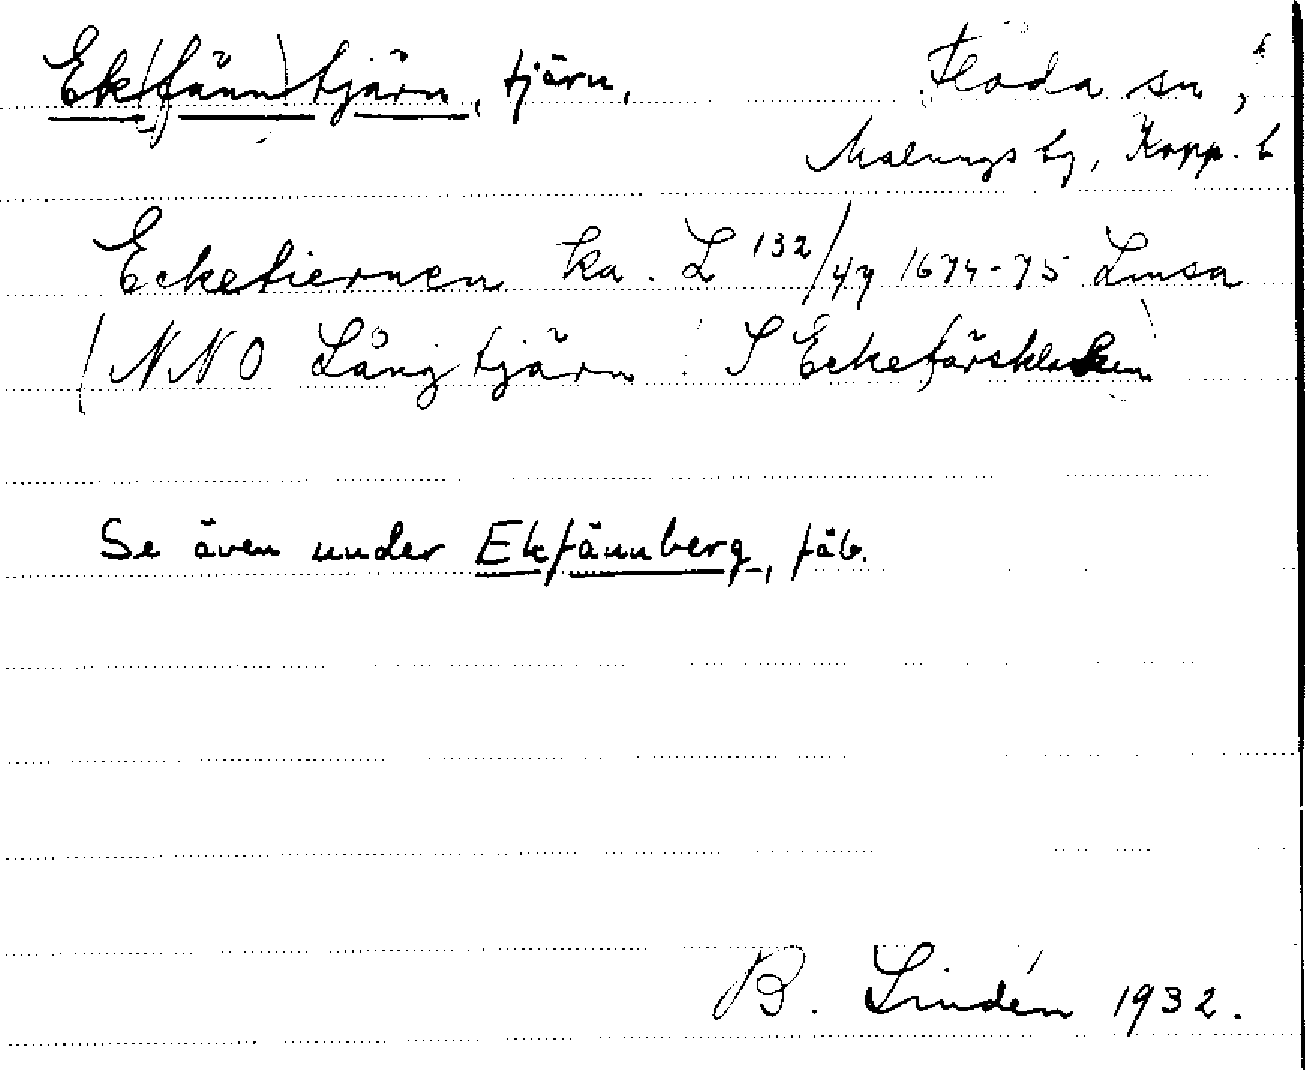 Ek(fänn)tjärn, tjärn, Floda sn,
Malungs by, Kopp. l
Ecketiernen ka. L 132/47 1674-75 Linsa
(NNO Långtjärn S Ecketärsklacken)
Se även under Ekfännberg, fäb.
B. Lindén 1932.